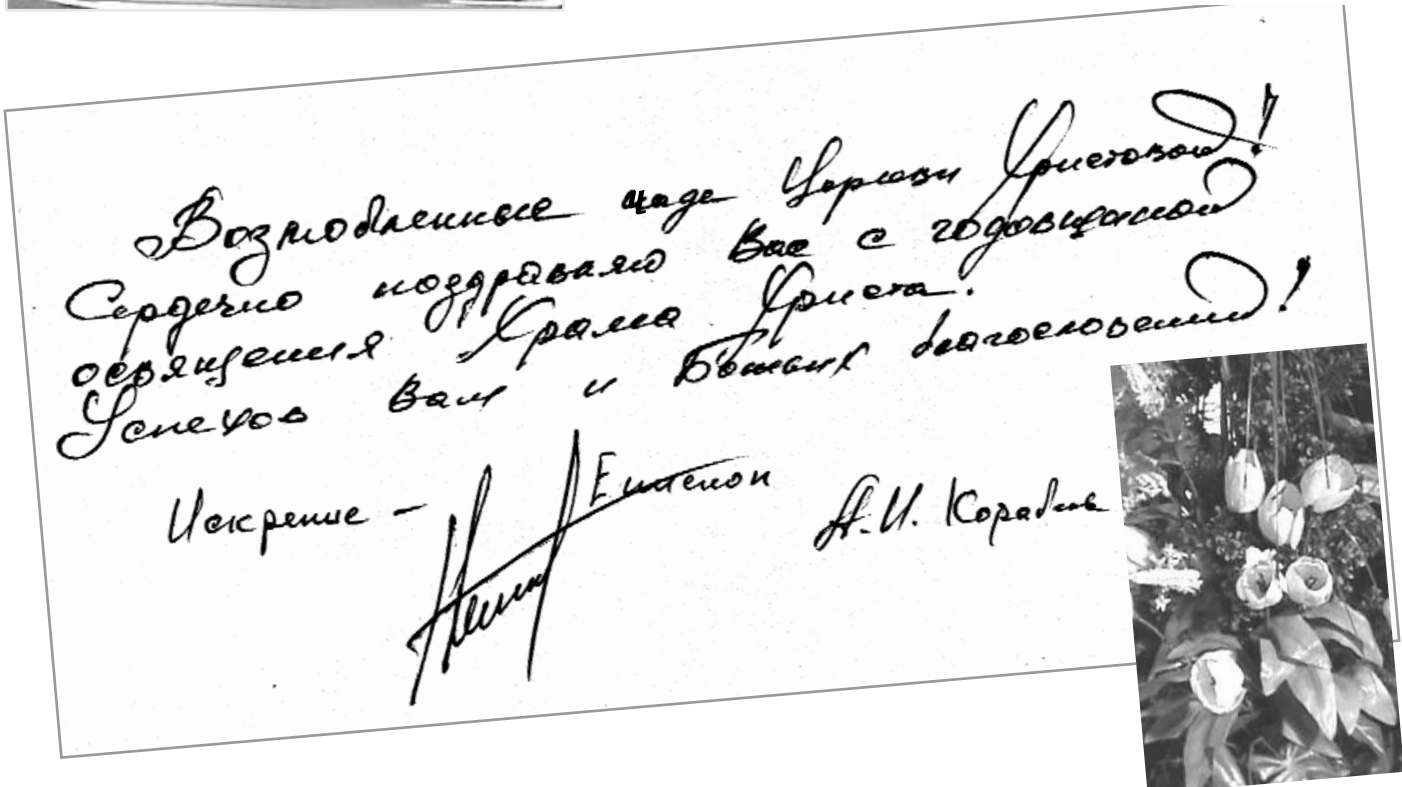 Возлюбленные чада Церкви Христовой!
Сердечно поздравляю Вас с годовщиной
освящения Храма Христа.
Успехов Вам и Божьих благословений!
Искренне – Епископ А. И. Корабель